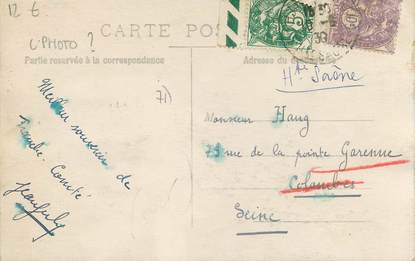 12 €
C-PHOTO ?
CARTE POS
Partie réservée à la correspondance
Adresse du
Hte Saône
71)
Meilleur souvenir de
Franche. Comté
Monsieur Haug
rue de la pointe Garenne
Colombes
Seine